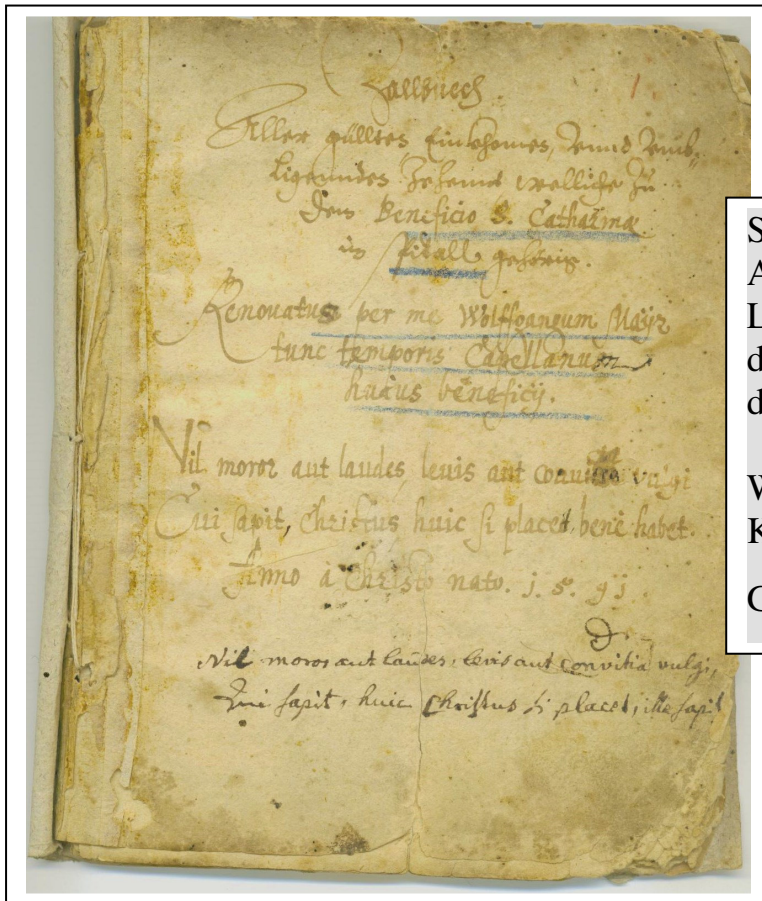 Sallbuech
1
Aller güllten Einkhomen, Vnnd Vmb-
ligenndes Zehennd welliche Zu
dem Beneficio S. Catharina
in Piball gehörig.
Renouatus per me Wolffgangum Mayr
tunc temporis Capellanum
huius beneficij.
Nil moror aut laudes, leuis aut vulgi
Cui sapit, Christus huic si placet, bene habet.
Anno à Christo nato. 1. 5. 91
Nil moror aut laudes, levis aut convitia vulgi,
Qui sapit, huic Christus si placet, ille sapit
S
A
L
d
d
W
K